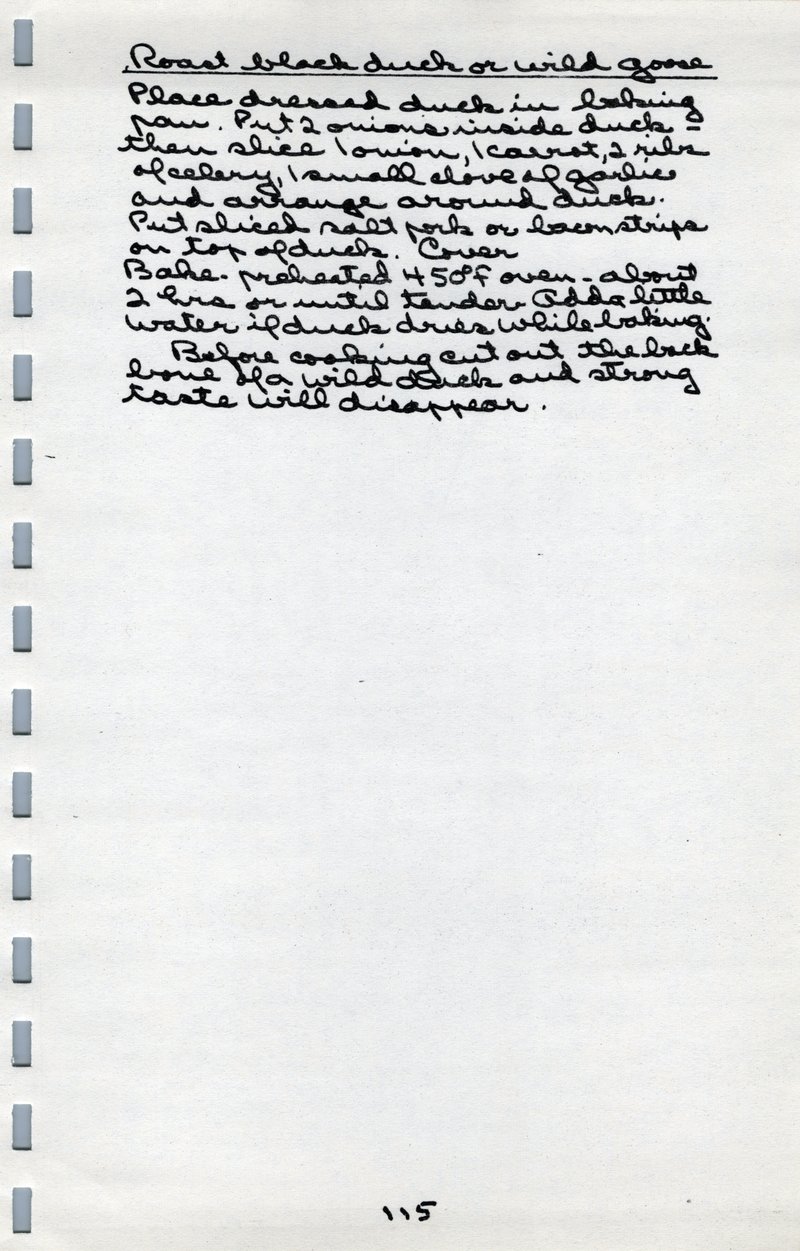 Roast black duck or wild goose
Place dressed duck in baking
pan. Put 2 onions inside duck -
then slice 1 onion, 1 carrot, 2 ribs
of celery, 1 small clove of garlic
and arrange around duck.
Put sliced salt pork or bacon strips
on top of duck. Cover
Bake - preheated 450°F oven - about
2 hrs or until tender Add a little
water if duck dries while baking.
Before cooking cut out the back
bone of a wild duck and strong
taste will disappear.
115